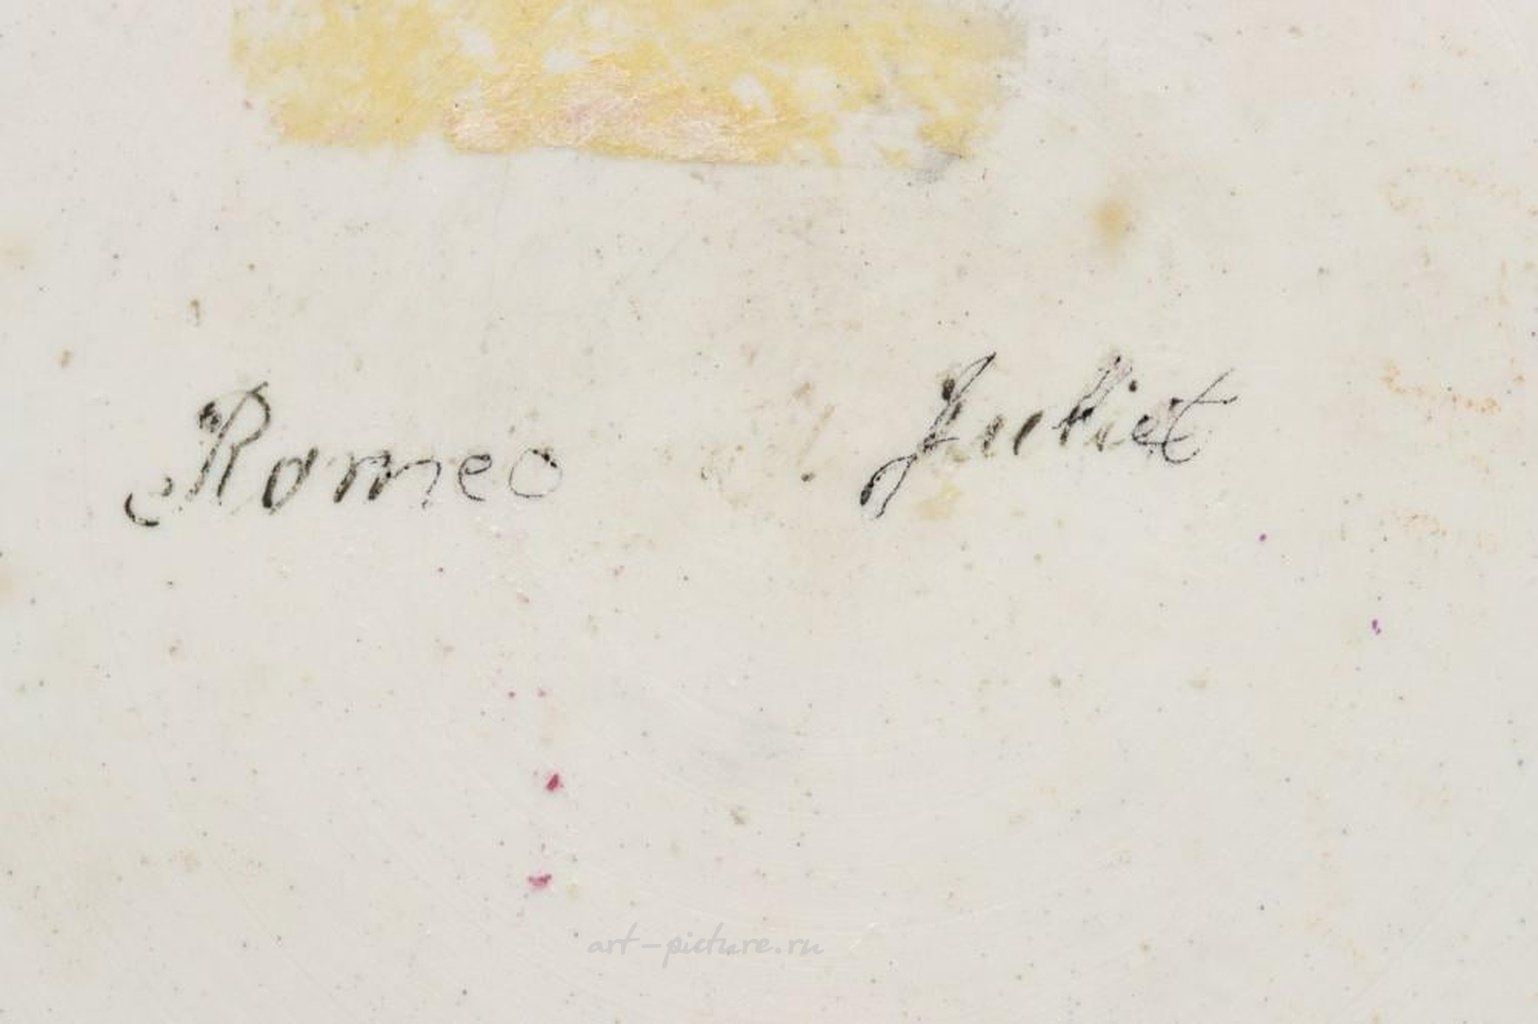 Romeo Juliet
art-picture.ru